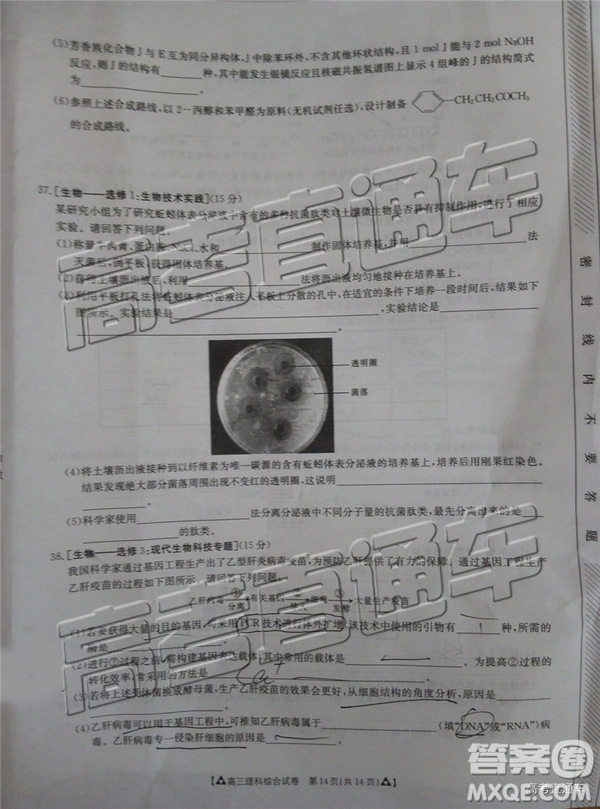 (5)芳香族化合物J与E互为同分异构体,J中除苯环外,不含其他环状结构,且1 mol J能与2 mol NaOH
反应,则J的结构有______种,其中能发生银镜反应且核磁共振氢谱图上显示4组峰的J的结构简式
为______。
(6)参照上述合成路线,以2-丙醇和苯甲醛为原料(无机试剂任选),设计制备 —CH2CH2COCH3
的合成路线。
37.[生物——选修1:生物技术实践](15分)
某研究小组为了研究蚯蚓体表分泌液中含有的多种抗菌肽类对土壤微生物是否具有抑制作用,进行了相应
实验。请回答下列问题:
(1)称量牛肉膏、蛋白胨、 水和______制作固体培养基,并用______法
灭菌后,倒平板,获得固体培养基。
(2)获得土壤沥出液后,利用______法将沥出液均匀地接种在培养基上。
(3)利用平板打孔法将蚯蚓体表分泌液注入平板上分散的孔中,在适宜的条件下培养一段时间后,结果如
图所示。实验目的是______,实验结论是______
______。
透明圈
菌落
(4)将土壤沥出液接种到以纤维素为唯一碳源的含有蚯蚓体表分泌液的培养基上,培养后用刚果红染色。
结果发现绝大部分菌落周围出现不变红的透明圈,这说明______
______。
(5)科学家使用______法分离分泌液中不同分子量的抗菌肽类,最先分离出来的是______
______的肽类。
38.[生物——选修3:现代生物科技专题](15分)
我国科学家通过基因工程生产出了乙型肝炎病毒疫苗,为预防乙肝提供了有力的保障。通过基因工程生产
乙肝疫苗的过程如下图所示。请回答下列问题。
乙肝病毒 ① 分离 基因 ② 导入 细菌 ③ 发酵 大量生产疫苗
(1)若要获得大量的目的基因,可采用PCR技术进行体外扩增,该技术中使用的引物有______种,所需的
酶是______。
(2)进行②过程之前,需构建基因表达载体,其中常用的载体是______。为提高②过程的
转化效率,常采用的方法是 Ca
(3)若将上述受体菌换成酵母菌,生产乙肝疫苗的效果会更好,从细胞结构的角度分析,原因是______
______。
(4)乙肝病毒可以用于基因工程中,可推知乙肝病毒属于______(填“DNA”或“RNA”)病
毒。乙肝病毒专一侵染肝细胞的原因是______。
高三理科综合试卷 第14页(共14页)
密封线内不要答题
高考直通车
高考直通车
答案圈
MXQE.COM
高考直通车